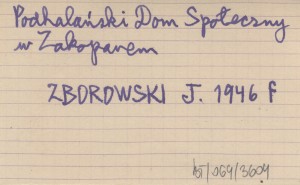 Podhalański Dom Społeczny
w Zakopanem
ZBOROWSKI J. 1946 f